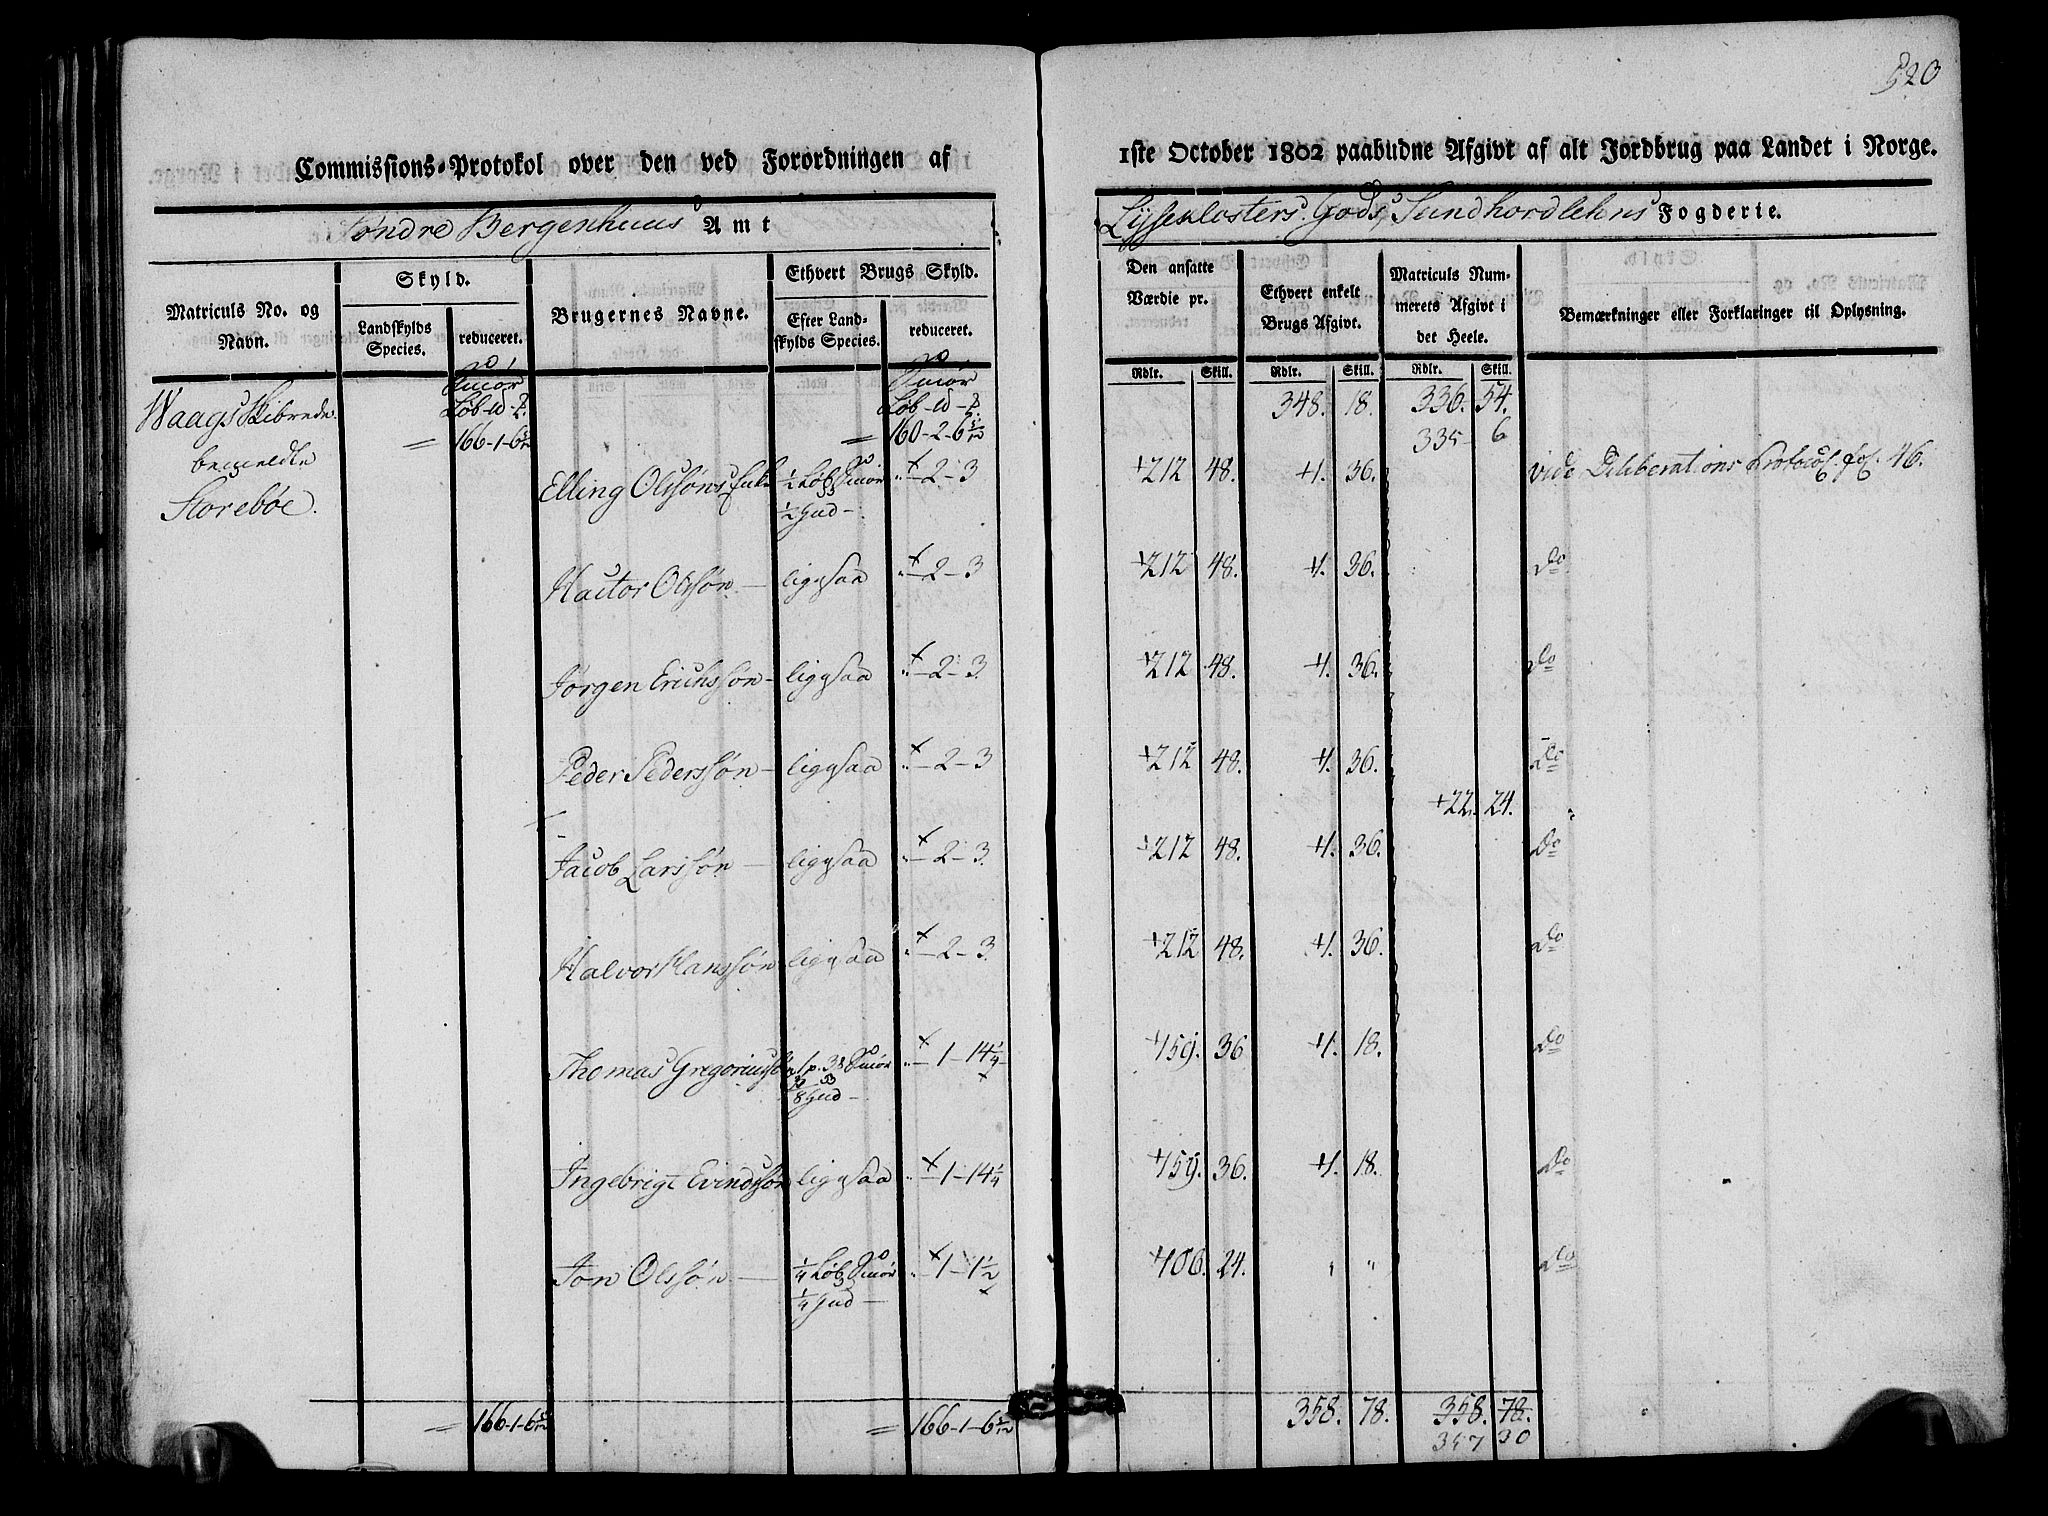 520
Commissions-Protokol over den ved Forordningen af 1ste October 1802 paabudne Afgivt af alt Jordbrug paa Landet i Norge.
Søndre Bergenhuus Amt
Lyseklosters Gods, Sundhordlehns Fogderie.
Matriculs No. og Navn.
Skyld.
Landskylds Species.
reduceret.
Brugernes Navne.
Ethvert Brugs Skyld.
Efter Landskylds Species.
reduceret.
Den ansatte Værdie pr.
Ethvert enkelt Brugs Afgivt.
Matriculs Nummerets Afgivt i det Heele.
Bemærkninger eller Forklaringer til Oplysning.
Rdlr. Skill. Rdlr. Skill. Rdlr. Skill.
Smør Smør
Waags Skibrede Løb Løb 348. 18. 336. 54.
= 166-1-6 5/12 = 160-2-6 5/12 335 6
bemeldte
Storebøe.
Elling Olssøns Enke 1/2 Løb Smør 1/2 Hud - " - 2 - 3 212 48. 1. 36. vide Deliberations Protocol fol. 46.
Hactor Olssøn - liggsaa " - 2 - 3 212 48. 1. 36. Do
Jørgen Erichssøn - liggsaa " - 2 - 3. 212 48. 1. 36. Do
Peder Pederssøn - liggsaa " - 2 - 3 212 48. 1. 36. Do
22. 24.
Jacob Larssøn - liggsaa " - 2 - 3. 212 48. 1. 36. Do
Halvor Hanssøn liggsaa " - 2 - 3. 212 48. 1. 36. Do
Thomas Gregoriussøn 1 p. Smør Hud - " - 1 - 14 1/4 159. 36 1. 18. Do
Ingebrigt Evindssøn liggsaa " - 1 - 14 1/4 159. 36. 1. 18. Do
Jon Olssøn - 1/4 Løb Smør 1/4 Hud - " - 1 - 1 1/2 106. 24. " " Do
= 166-1-6 5/12 = 166-1-6 5/12 358. 78. 358. 78.
357 30